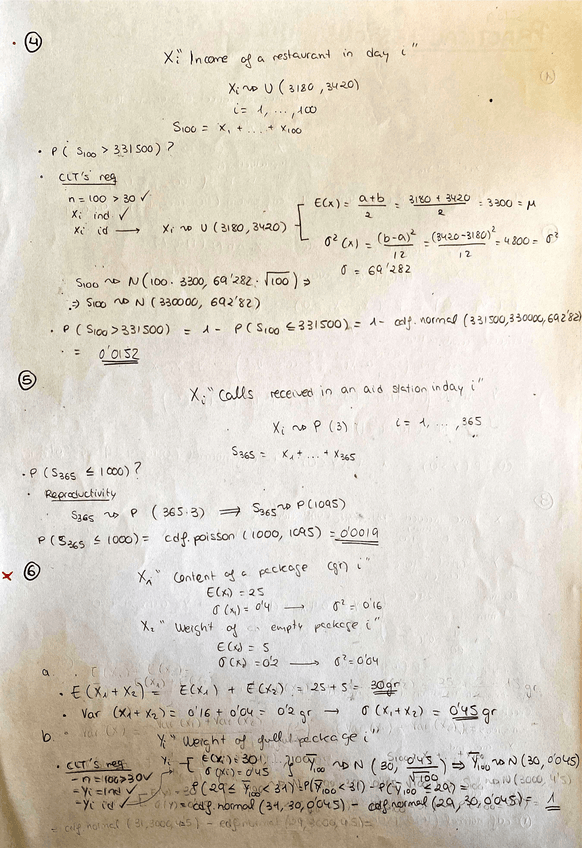 ④
Xi "Income of a restaurant in day i"
Xi ~> U (3180, 3420)
i = 1, ..., 100
S100 = X1 + ... + X100
· P( S100 > 331500) ?
· CLT's req
n = 100 > 30 ✓
Xi ind ✓
Xi id → Xi ~> U (3180, 3420)
E(x) = (a+b)/2 = (3180 + 3420)/2 = 3300 = μ
σ²(x) = (b-a)²/12 = (3420-3180)²/12 = 4800 = σ²
σ = 69'282
S100 ~> N (100 · 3300, 69'282 · √100) ⇒
⇒ S100 ~> N (330000, 692'82)
· P (S100 > 331500) = 1 - P(S100 ≤ 331500) = 1 - cdf.normal (331500, 330000, 692'82)
= 0'0152
⑤
Xi "Calls received in an aid station in day i"
Xi ~> P (3) i = 1, ..., 365
S365 = X1 + ... + X365
· P (S365 ≤ 1000) ?
· Reproductivity
S365 ~> P (365·3) ⟹ S365 ~> P(1095)
P (S365 ≤ 1000) = cdf.poisson (1000, 1095) = 0'0019
× ⑥
X1 "Content of a package (gr) i"
E(Xi) = 25
σ (X1) = 0'4 → σ² = 0'16
X2 "Weight of an empty package i"
E(X2) = 5
σ(X2) = 0'2 → σ² = 0'04
a.
· E (X1 + X2) = E(X1) + E(X2) = 25 + 5 = 30 gr
· Var (X1 + X2) = 0'16 + 0'04 = 0'2 gr → σ (X1 + X2) = 0'45 gr
b.
Yi "Weight of full package i"
· CLT's req
- n = 100 > 30 ✓
- Yi ind ✓
- Yi id ✓
Yi E(Xi) = 30
σ (Xi) = 0'45
Ȳ100 ~> N (30, 0'45/√100) ⇒ Ȳ100 ~> N (30, 0'045)
P (29 ≤ Ȳ100 < 31) = P(Ȳ100 < 31) - P(Ȳ100 ≤ 29) =
= cdf.normal (31, 30, 0'045) - cdf.normal (29, 30, 0'045) = 1